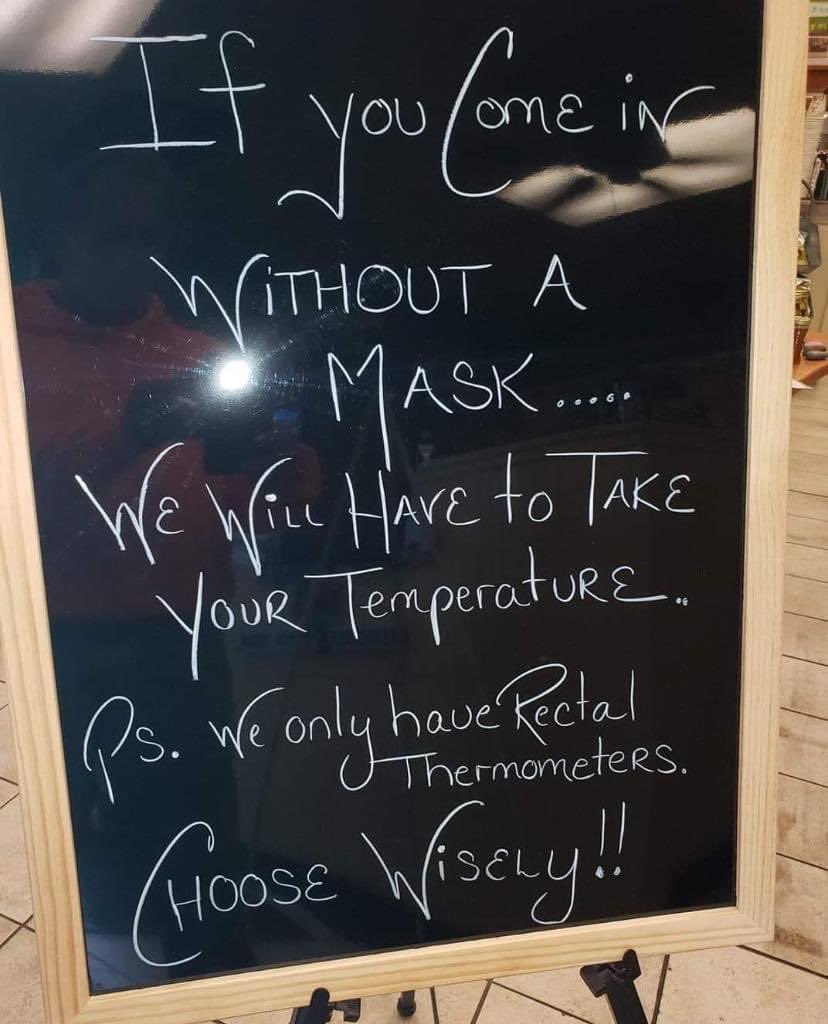 If you Come in
WiTHOUT A
MASK.....
WE WiLL HAVE to TAKE
YOUR TemperatURE..
Ps. We only have Rectal
ThermomETERS.
CHOOSE WiSELy!!